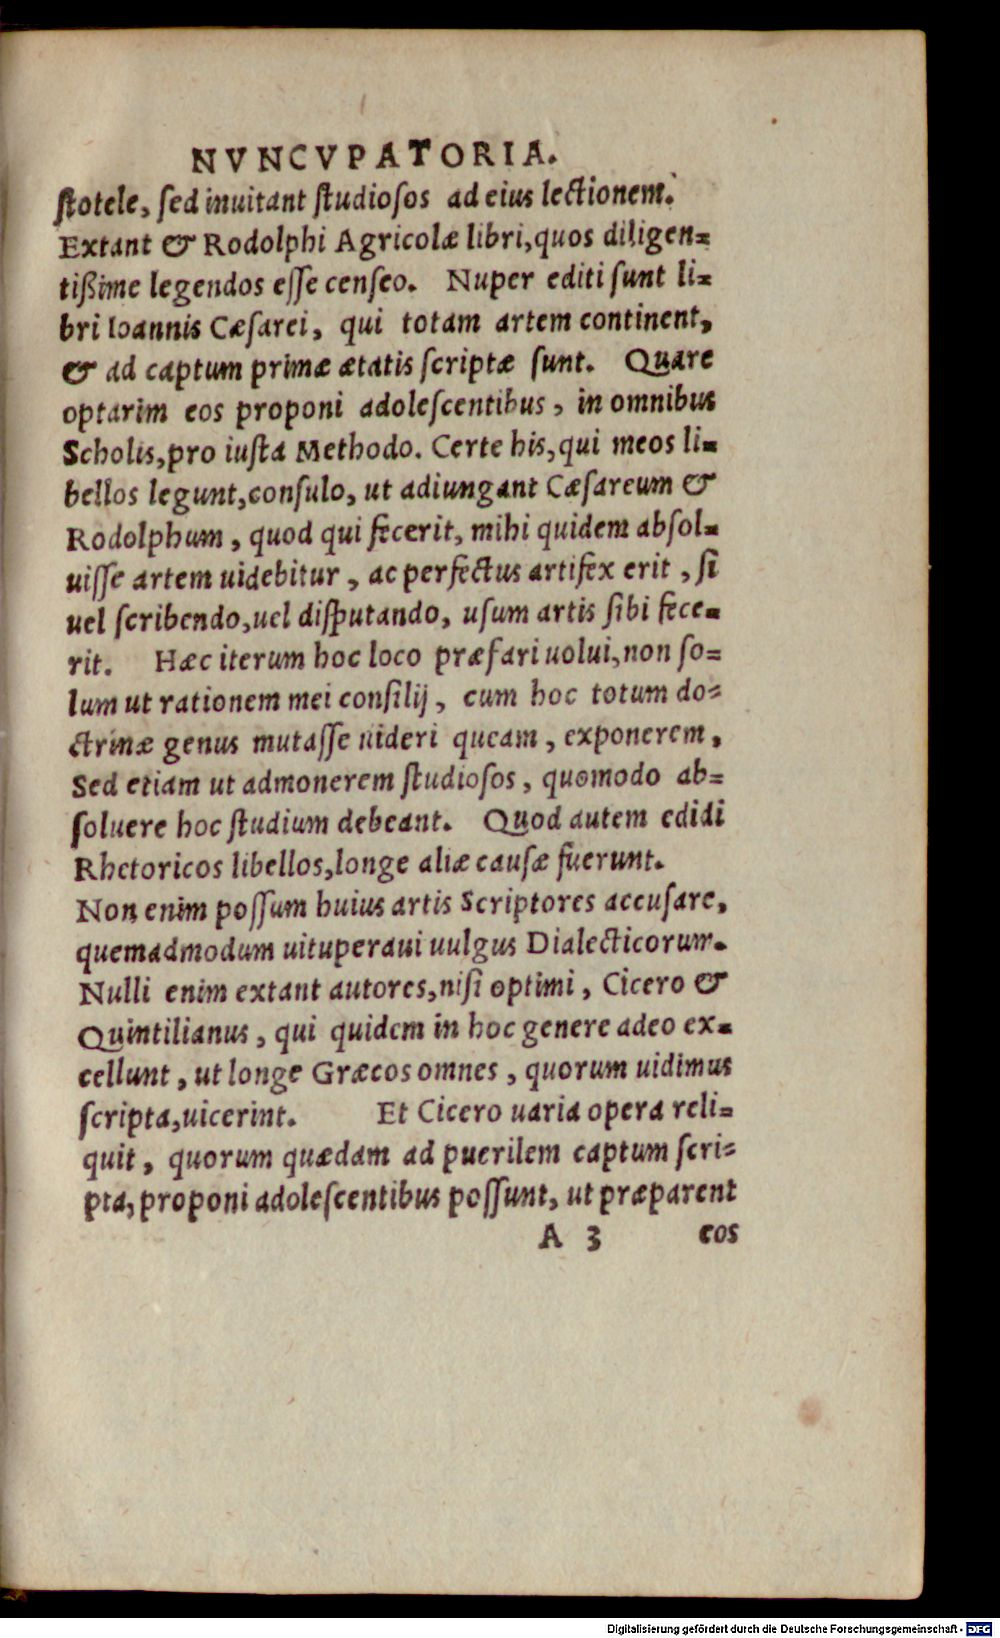 NVNCVPATORIA.
ſtotele, ſed inuitant ſtudioſos ad eius lectionem.
Extant & Rodolphi Agricolæ libri, quos diligen=
tißime legendos eſſe cenſeo. Nuper editi ſunt li=
bri Ioannis Cæſarei, qui totam artem continent,
& ad captum primæ ætatis ſcriptæ ſunt. Quare
optarim eos proponi adoleſcentibus, in omnibus
Scholis, pro iuſta Methodo. Certe his, qui meos li=
bellos legunt, conſulo, ut adiungant Cæſareum &
Rodolphum, quod qui fecerit, mihi quidem abſol=
uiſſe artem uidebitur, ac perfectus artifex erit, ſi
uel ſcribendo, uel diſputando, uſum artis ſibi fece=
rit. Hæc iterum hoc loco præfari uolui, non ſo=
lum ut rationem mei conſilij, cum hoc totum do=
ctrinæ genus mutaſſe uideri queam, exponerem,
Sed etiam ut admonerem ſtudioſos, quomodo ab=
ſoluere hoc ſtudium debeant. Quod autem edidi
Rhetoricos libellos, longe aliæ cauſæ fuerunt.
Non enim poſſum huius artis Scriptores accuſare,
quemadmodum uituperaui uulgus Dialecticorum.
Nulli enim extant autores, niſi optimi, Cicero &
Quintilianus, qui quidem in hoc genere adeo ex=
cellunt, ut longe Græcos omnes, quorum uidimus
ſcripta, uicerint. Et Cicero uaria opera reli=
quit, quorum quædam ad puerilem captum ſcri=
pta, proponi adoleſcentibus poſſunt, ut præparent
A 3 eos
Digitalisierung gefördert durch die Deutsche Forschungsgemeinschaft - DFG